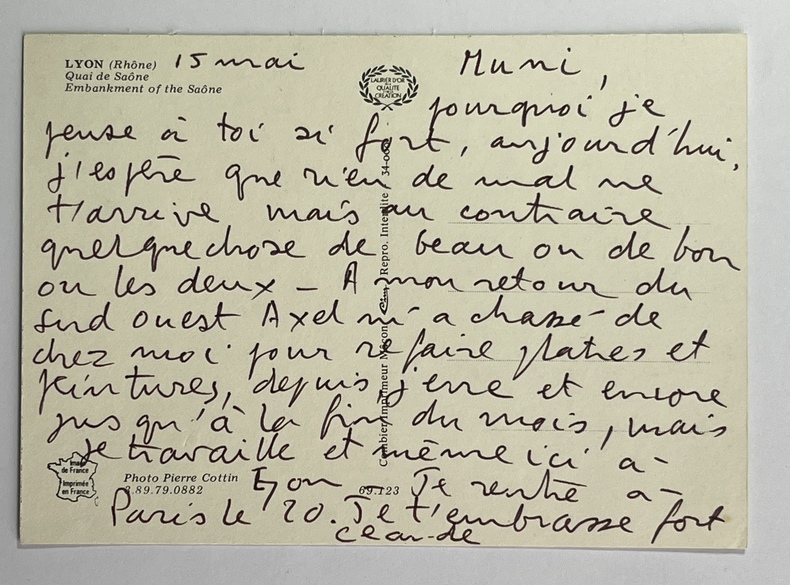 LYON (Rhône) 15 mai
Quai de Saône
Embankment of the Saône
LAURIER D'OR
QUALITÉ
CRÉATION
Muni,
pourquoi je
pense à toi si fort, aujourd'hui,
j'espère que rien de mal ne
t'arrive mais au contraire
quelquechose de beau ou de bon
ou les deux – A mon retour du
Sud ouest Axel m'a chassé de
chez moi pour refaire platres et
peintures, depuis j'erre et encore
jusqu'à la fin du mois, mais
je travaille et même ici à
Lyon – Je rentre à
Paris le 20. Je t'embrasse fort
Combier Imprimeur Mâcon Repro. Interdite
Image
de France
Imprimée
en France
Photo Pierre Cottin
3.89.79.0882
69.123